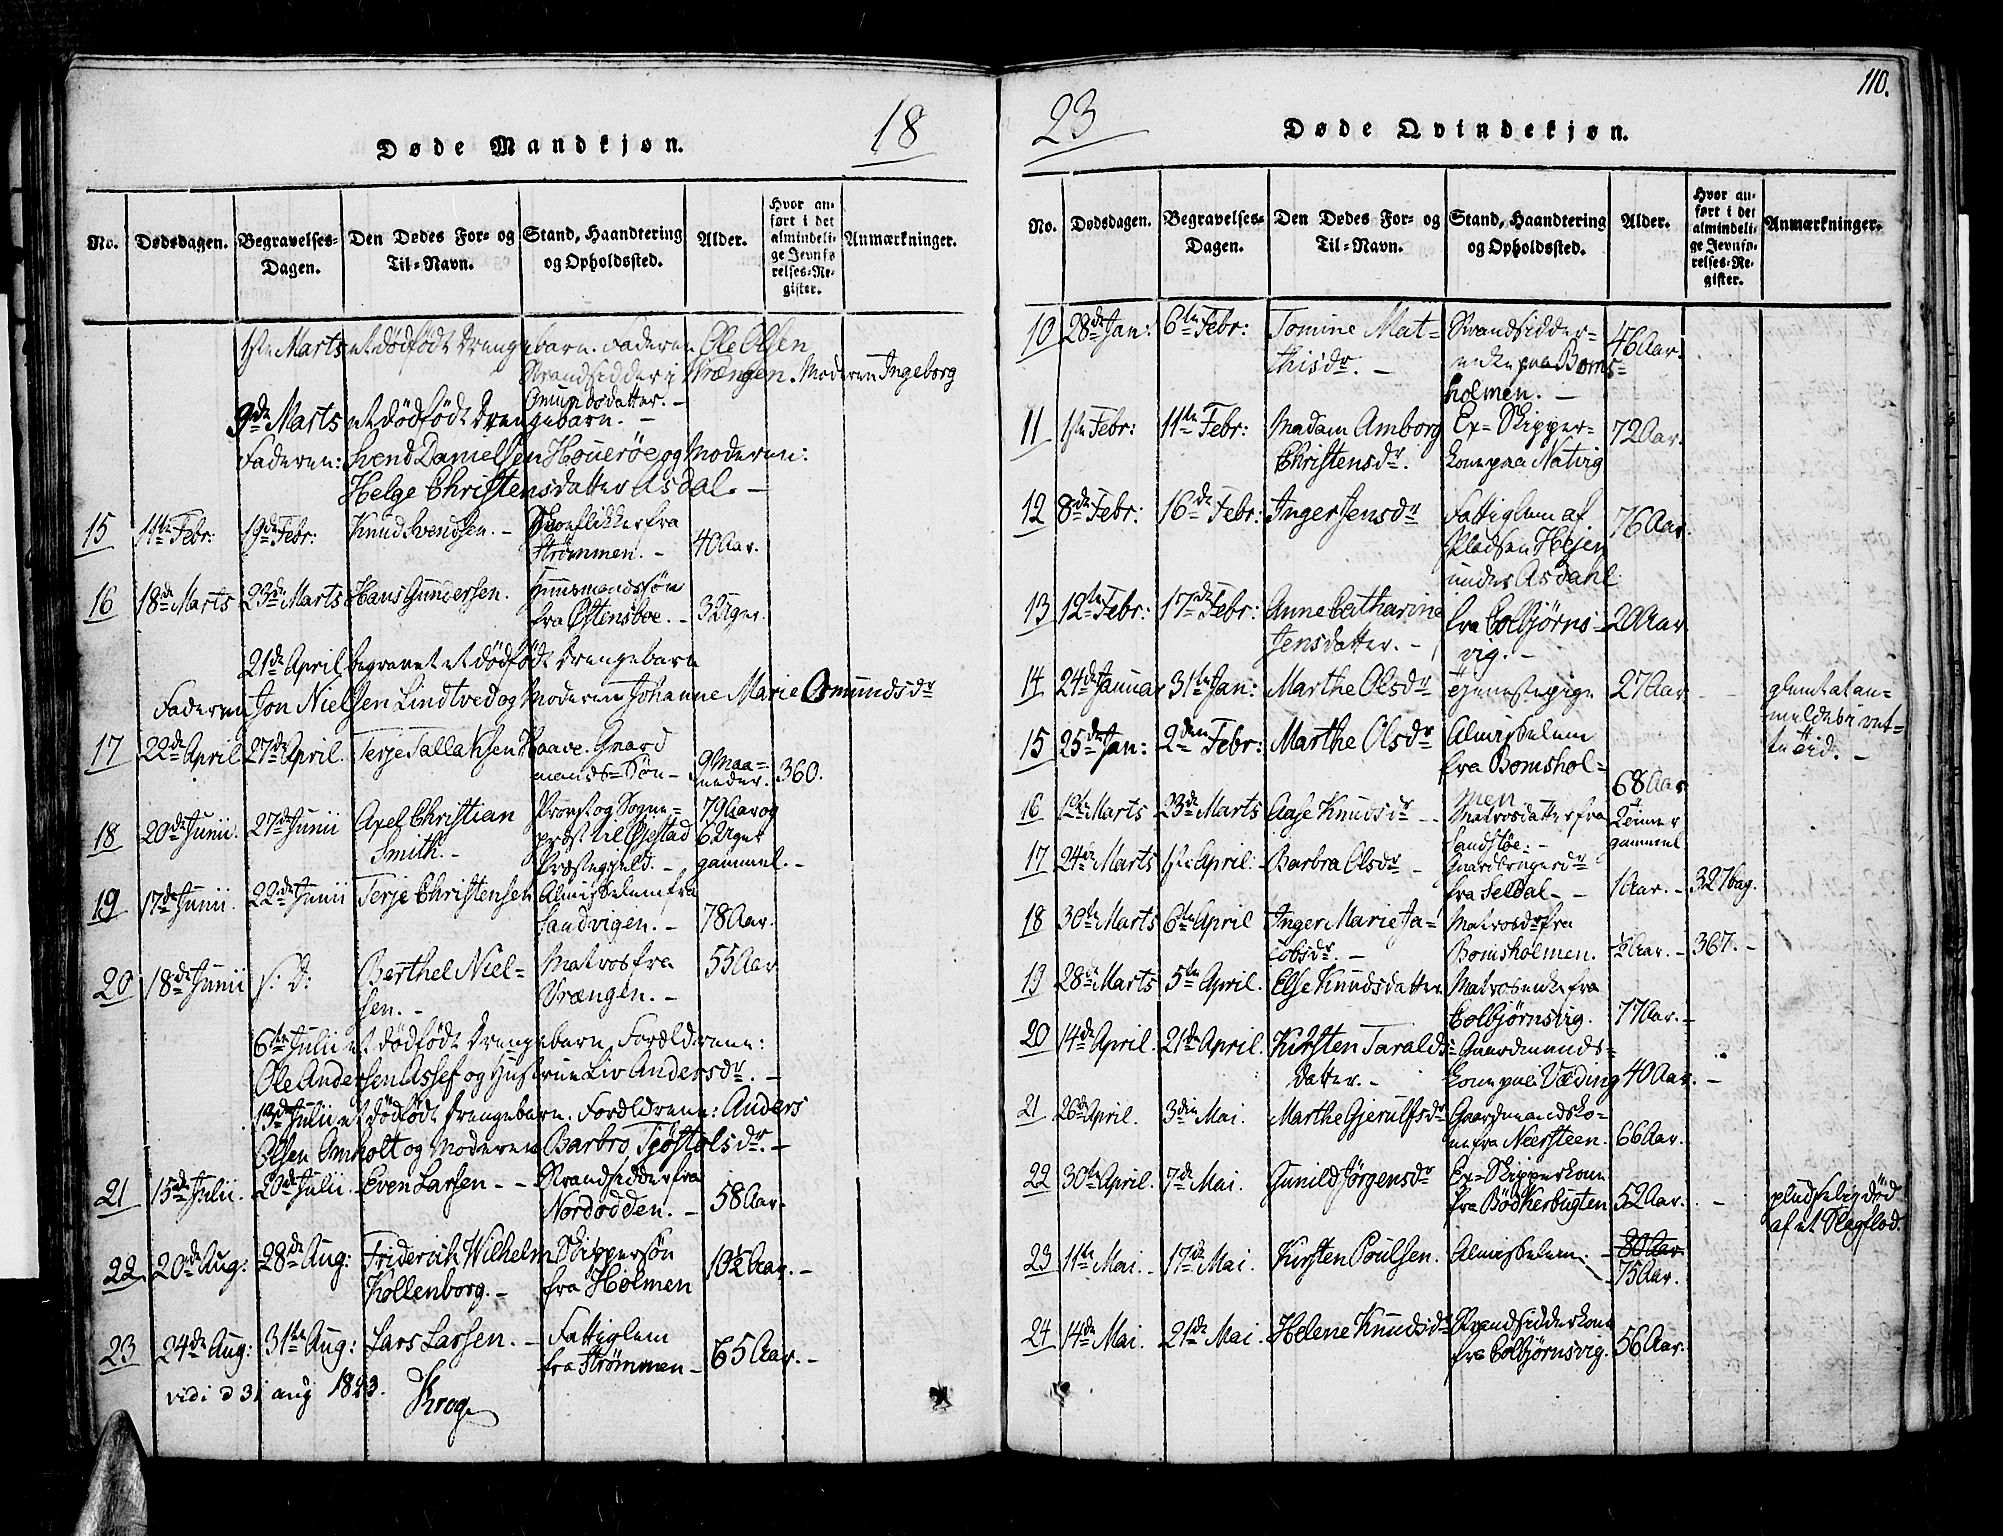 18
Døde Mandkjøn.
No.
Dødsdagen.
Begravelses-
Dagen.
Den Dødes For- og
Til-Navn.
Stand, Haandtering
og Opholdssted.
Alder.
Hvor an-
ført i det
almindeli-
ge Jevnfø
relses-Re-
gister.
Anmærkninger.
1ste Marts et dødfødt Drengebarn. Faderen Ole Olsen
Strandsidder i Vrængen. Moderen Ingeborg
Omundsdatter. -
9de Marts et dødfødt Drengebarn. -
Faderen: Svend Danielsen Houerøe og Moderen:
Helge Christensdatter Asdal. -
15 11te Febr: 19de Febr: Knud Svendsen. - Skoeflikker fra
Strømmen. - 40 Aar.
16 18de Marts 23de Marts Hans Gundersen. Huusmandssøn
fra Østensboe. - 3 Uger.
21de April begravet et dødfødt Drengebarn
Faderen Jon Nielsen Lindtved og Moderen Johanne Marie Omundsdr
17 22de April 27de April. Terje Tallaksen Haave. Gaard
mands-Søn - 9 Maa-
neder. 360.
18 20de Junii. 27de Junii Axel Christian
Smith. - Provst og Sogne-
præst til Øiestad
Præstegjeld. - 79 Aar og
6 Uger
gammel. -
19 17de Junii. 22de Junii Terje Christensen Almisselem fra
Sandvigen. - 78 Aar.
20 18de Junii s: D: Berthel Niel-
sen. - Matros fra
Vrængen. - 55 Aar
6te Julii et dødfødt Drengebarn, Forældrene:
Ole Andersen Assef og Hustrue Liv Andersdr. -
13de Julii et dødfødt Drengebarn. Forældrene: Anders
Olsen Omholt og Moderen Barbro Tjøstolsdr. -
21 15de Julii. 20de Julii. Even Larsen - - Strandsidder fra
Nordodden. - 58 Aar.
22 20de Aug: 28de Aug: Friderich Wilhelm
Kollenborg. - Skippersøn
fra Holmen 10½ Aar. -
23 24de Aug: 31te Aug: Lars Larsen. - Fattiglem
fra Strømmen - 65 Aar. -
vidi d 31 aug 1823.
Krog
110.
23
Døde Qvindekjøn.
No.
Dødsdagen.
Begravelses-
Dagen.
Den Dødes For- og
Til-Navn.
Stand, Haandtering
og Opholdssted.
Alder.
Hvor an-
ført i det
almindeli-
ge Jevnfø-
relses-Re-
gister.
Anmærkninger.
10 28de Jan: 6te Febr: Tomine Mat-
thisdr. - Strandsidder-
enke paa Boms-
holmen. - 46 Aar.
11 1ste Febr: 11te Febr: Madam Amborg
Christensdr. Ex-Skipper-
kone paa Natvig 72 Aar.
12 8de Febr: 16de Febr: Inger Jensdr Fattiglem af
Pladsen Hejen
under Asdahl 76 Aar.
13 12te Febr: 17de Febr: Anne Catharina
Jensdatter. - fra Colbjørns-
vig. - 20 Aar
14 24de Januar 31te Jan: Marthe Olsdr Tjenestepige 27 Aar - glemt at an-
meldes i ret-
te tid. -
15 25de Jan: 2den Febr: Marthe Olsdr Almisselem
fra Bomshol-
men 68 Aar
16 12te Marts 23de Marts Aase Knudsdr - Matrosdatter fra
Sandstøe. - 2 Timer
gammel
17 24de Marts 1ste April. Barbra Olsdr - Gaardbrugerdr
fra Seldal - - 1 Aar. - 327 bag.
18 30te Marts 6te April Inger Marie Ja-
cobsdr. - Matrosdr fra
Bomsholmen. ½ Aar. - 367. -
19 28de Marts 5te April. Else Knudsdatter Matrosenke fra
Colbjørnsvig. 77 Aar. -
20 14de April. 21de April. Kirsten Taralds-
datter. - Gaardmands-
kone paa Væding 40 Aar. -
21 26de April. 3die Mai. Marthe Gjerulfsdr Gaardmandsko-
ne fra Neersteen. 66 Aar.
22 30te April. 7de Mai. Gunild Jørgensdr Ex-Skipperkone
fra Bödkerbugten 52 Aar. - pludselig død
af et Slagflod.
23 11te Mai. 17de Mai. Kirsten Poulsen. Almisselem. - 80 Aar.
75 Aar.
24 14de Mai. 21de Mai. Helene Knudsdr Strandsidderkone
fra Colbjørnsvig. 56 Aar.